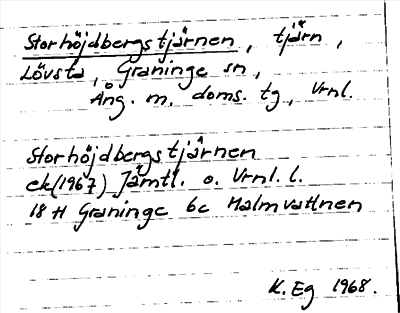 Storhöjdbergstjärnen, tjärn,
Lövsta, Graninge sn,
Ång. m. doms. tg, Vrnl.
Storhöjdbergstjärnen
ek(1967) Jämtl. o. Vrnl. l.
18 H Graninge 6c Malmvattnen
K. Eg 1968.